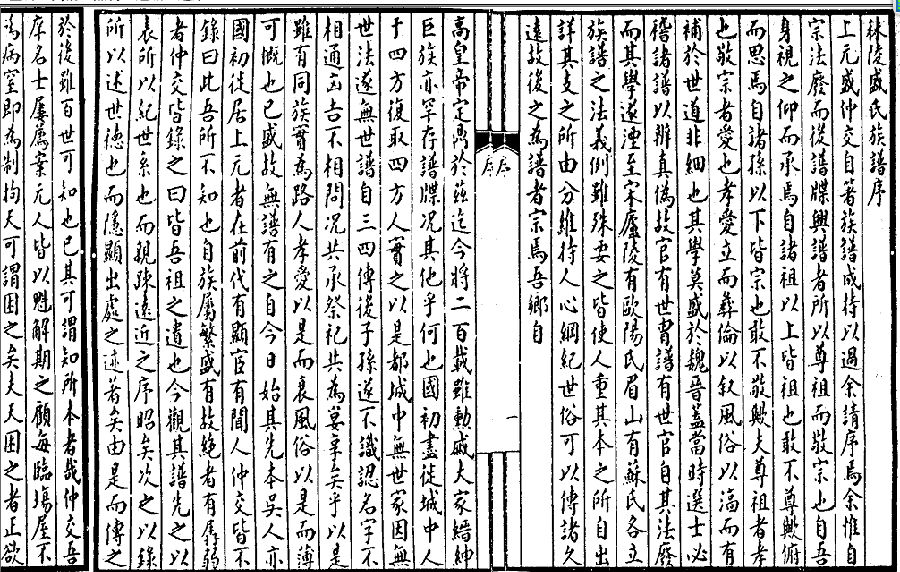 秣陵盛氏族譜序
上元盛仲交自著族譜成持以過余請序焉余惟自
宗法廢而從譜牒興譜者所以尊祖而敬宗也自吾
身視之仰而承焉自諸祖以上皆祖也敢不尊歟俯
而思焉自諸孫以下皆宗也敢不敬歟夫尊祖者孝
也敬宗者愛也孝愛立而彝倫以叙風俗以滀而有
補於世道非細也其學莫盛於魏晉蓋當時選士必
稽諸譜以辨真偽故官有世胄譜有世官自其法廢
而其學遂湮至宋廬陵有歐陽氏眉山有蘇氏各立
族譜之法義例雖殊要之皆使人重其本之所自出
詳其支之所由分維持人心綱紀世俗可以傳諸久
遠故後之為譜者宗焉吾鄉自
高皇帝定鼎於茲迄今將二百載雖勳戚大家縉紳
巨族亦罕存譜牒况其他乎何也國初盡徙城中人
十四方復取四方人實之以是都城中無世家因無
世法遂無世譜自三四傳後子孫遂不識認名字不
相通吉凶不相問况共承祭祀共為宴享矣乎以是
雖百同族實為路人孝愛以是而衰風俗以是而薄
可慨也已盛故無譜有之自今日始其先本吳人亦
國初徙居上元者在前代有顯宦有間人仲交皆不
錄曰此吾所不知也自族屬繁盛有故絕者有孱弱
者仲交皆錄之曰皆吾祖之遺也今觀其譜先之以
表所以紀世系也而親疎遠近之序昭矣次之以錄
所以述世德也而隱顯出處之迹著矣由是而傳之
於後雖百世可知也已其可謂知所本者哉仲交吾
庠名士屢屬案元人皆以魁解期之顧每臨場屋不
為病窒即為制拘天可謂困之矣夫天困之者正欲